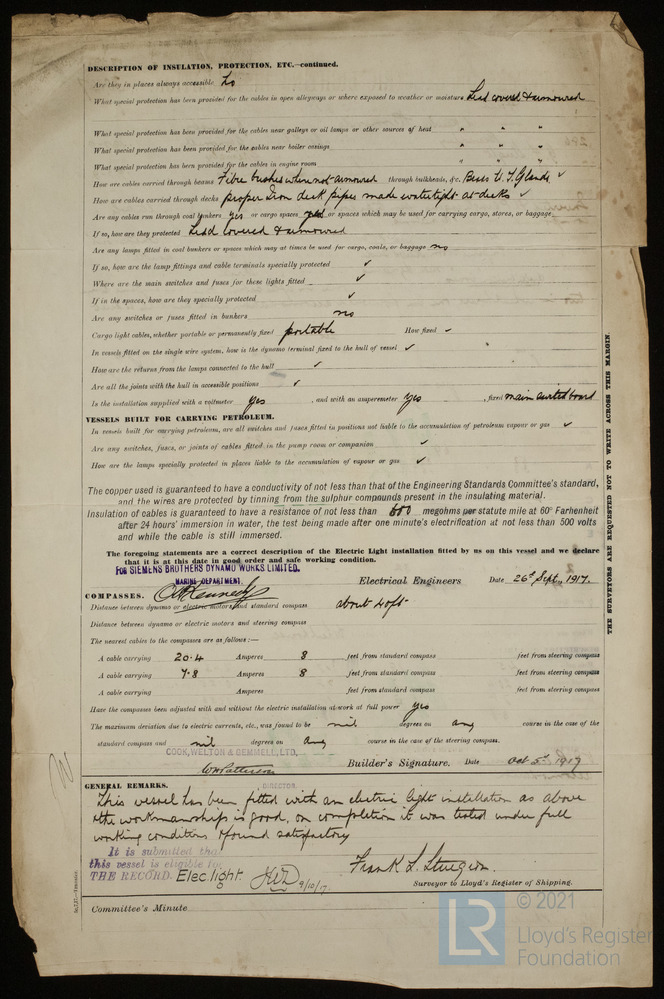 DESCRIPTION OF INSULATION, PROTECTION, ETC.—continued.
Are they in places always accessible No
What special protection has been provided for the cables in open alleyways or where exposed to weather or moisture Lead covered & armoured
What special protection has been provided for the cables near galleys or oil lamps or other sources of heat " " "
What special protection has been provided for the cables near boiler casings " " "
What special protection has been provided for the cables in engine room " " "
How are cables carried through beams Fibre bushes when not armoured through bulkheads, &c. Brass W. T. Glands ✓
How are cables carried through decks proper Iron deck pipes made watertight at decks ✓
Are any cables run through coal bunkers yes or cargo spaces yes or spaces which may be used for carrying cargo, stores, or baggage
If so, how are they protected Lead Covered & armoured
Are any lamps fitted in coal bunkers or spaces which may at times be used for cargo, coals, or baggage no
If so, how are the lamp fittings and cable terminals specially protected ✓
Where are the main switches and fuses for these lights fitted ✓
If in the spaces, how are they specially protected ✓
Are any switches or fuses fitted in bunkers no
Cargo light cables, whether portable or permanently fixed portable How fixed ✓
In vessels fitted on the single wire system, how is the dynamo terminal fixed to the hull of vessel ✓
How are the returns from the lamps connected to the hull ✓
Are all the joints with the hull in accessible positions ✓
Is the installation supplied with a voltmeter yes, and with an amperemeter yes, fixed main switchboard
VESSELS BUILT FOR CARRYING PETROLEUM.
In vessels built for carrying petroleum, are all switches and fuses fitted in positions not liable to the accumulation of petroleum vapour or gas ✓
Are any switches, fuses, or joints of cables fitted in the pump room or companion ✓
How are the lamps specially protected in places liable to the accumulation of vapour or gas ✓
The copper used is guaranteed to have a conductivity of not less than that of the Engineering Standards Committee's standard,
and the wires are protected by tinning from the sulphur compounds present in the insulating material.
Insulation of cables is guaranteed to have a resistance of not less than 600 megohms per statute mile at 60° Farhenheit
after 24 hours' immersion in water, the test being made after one minute's electrification at not less than 500 volts
and while the cable is still immersed.
The foregoing statements are a correct description of the Electric Light installation fitted by us on this vessel and we declare
that it is at this date in good order and safe working condition.
FOR SIEMENS BROTHERS DYNAMO WORKS LIMITED.
MARINE DEPARTMENT.
Kennedy Electrical Engineers Date 26th Sept., 1917.
COMPASSES.
Distance between dynamo or electric motors and standard compass about 40 ft
Distance between dynamo or electric motors and steering compass
The nearest cables to the compasses are as follows:—
A cable carrying 20.4 Amperes 8 feet from standard compass feet from steering compass
A cable carrying 7.8 Amperes 8 feet from standard compass feet from steering compass
A cable carrying Amperes feet from standard compass feet from steering compass
Have the compasses been adjusted with and without the electric installation at work at full power yes
The maximum deviation due to electric currents, etc., was found to be nil degrees on any course in the case of the
standard compass and nil degrees on any course in the case of the steering compass.
COOK, WELTON & GEMMELL, LTD,
W Patterson Builder's Signature. Date Oct 5th 1917
DIRECTOR
GENERAL REMARKS.
This vessel has been fitted with an electric light installation as above
the workmanship is good, on completion it was tested under full
working conditions & found satisfactory
It is submitted that
this vessel is eligible for
THE RECORD. Elec. light. 9/10/17
Frank L. Sturgeon.
Surveyor to Lloyd's Register of Shipping.
Committee's Minute
THE SURVEYORS ARE REQUESTED NOT TO WRITE ACROSS THIS MARGIN.
LR
© 2021
Lloyd's Register
Foundation